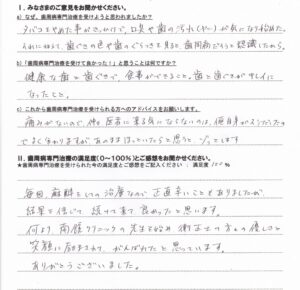 I. みなさまのご意見をお聞かせください。
a) なぜ、歯周病専門治療を受けようと思われましたか？
タバコをやめた事がきっかけで、口臭や歯の汚れ(ヤニ)が気になり始めた。
それに加えて、歯ぐきの色や歯のぐらつきを見ると、歯周病だろうと認識したから。
b) 「歯周病専門治療を受けて良かった！」と思うことは何ですか？
健康な歯と歯ぐきで、食事ができること。歯と歯ぐきがキレイに
なったこと。
c) これから歯周病専門治療を受けられる方へのアドバイスをお願いします。
痛みがないので、
でよく分かりますが、あのままほっといたらと思うと、ゾッとします
II. 歯周病専門治療の満足度(0～100%)とご感想をお聞かせください。
★歯周病専門治療を受けられた今の満足度とご感想をご記入ください 満足度 100 %
毎回、麻酔をしての治療なので正直辛いこともありましたが、
結果を信じて続けて来て良かったと思います。
何より、クリニックの先生を始め衛生士の方々の優しさと
笑顔に励まされて、がんばれたと思っています。
ありがとうございました。